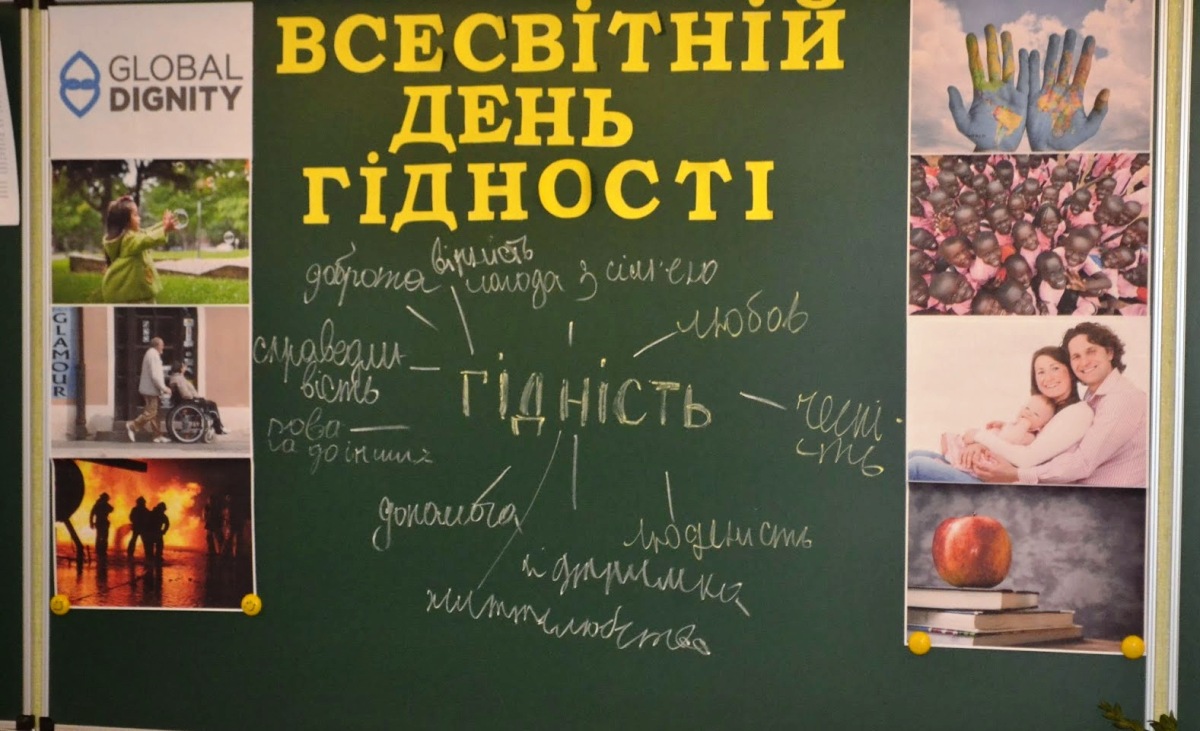 GLOBAL
DIGNITY
ВСЕСВІТНІЙ
ДЕНЬ
ГІДНОСТІ
GLAMOUR
доброта
вірність
злагода з сім'єю
любов
справедли-
вість
гідність
чесні-
сть
пова-
га до інших
допомога
людяність
підтримка
життєлюбство